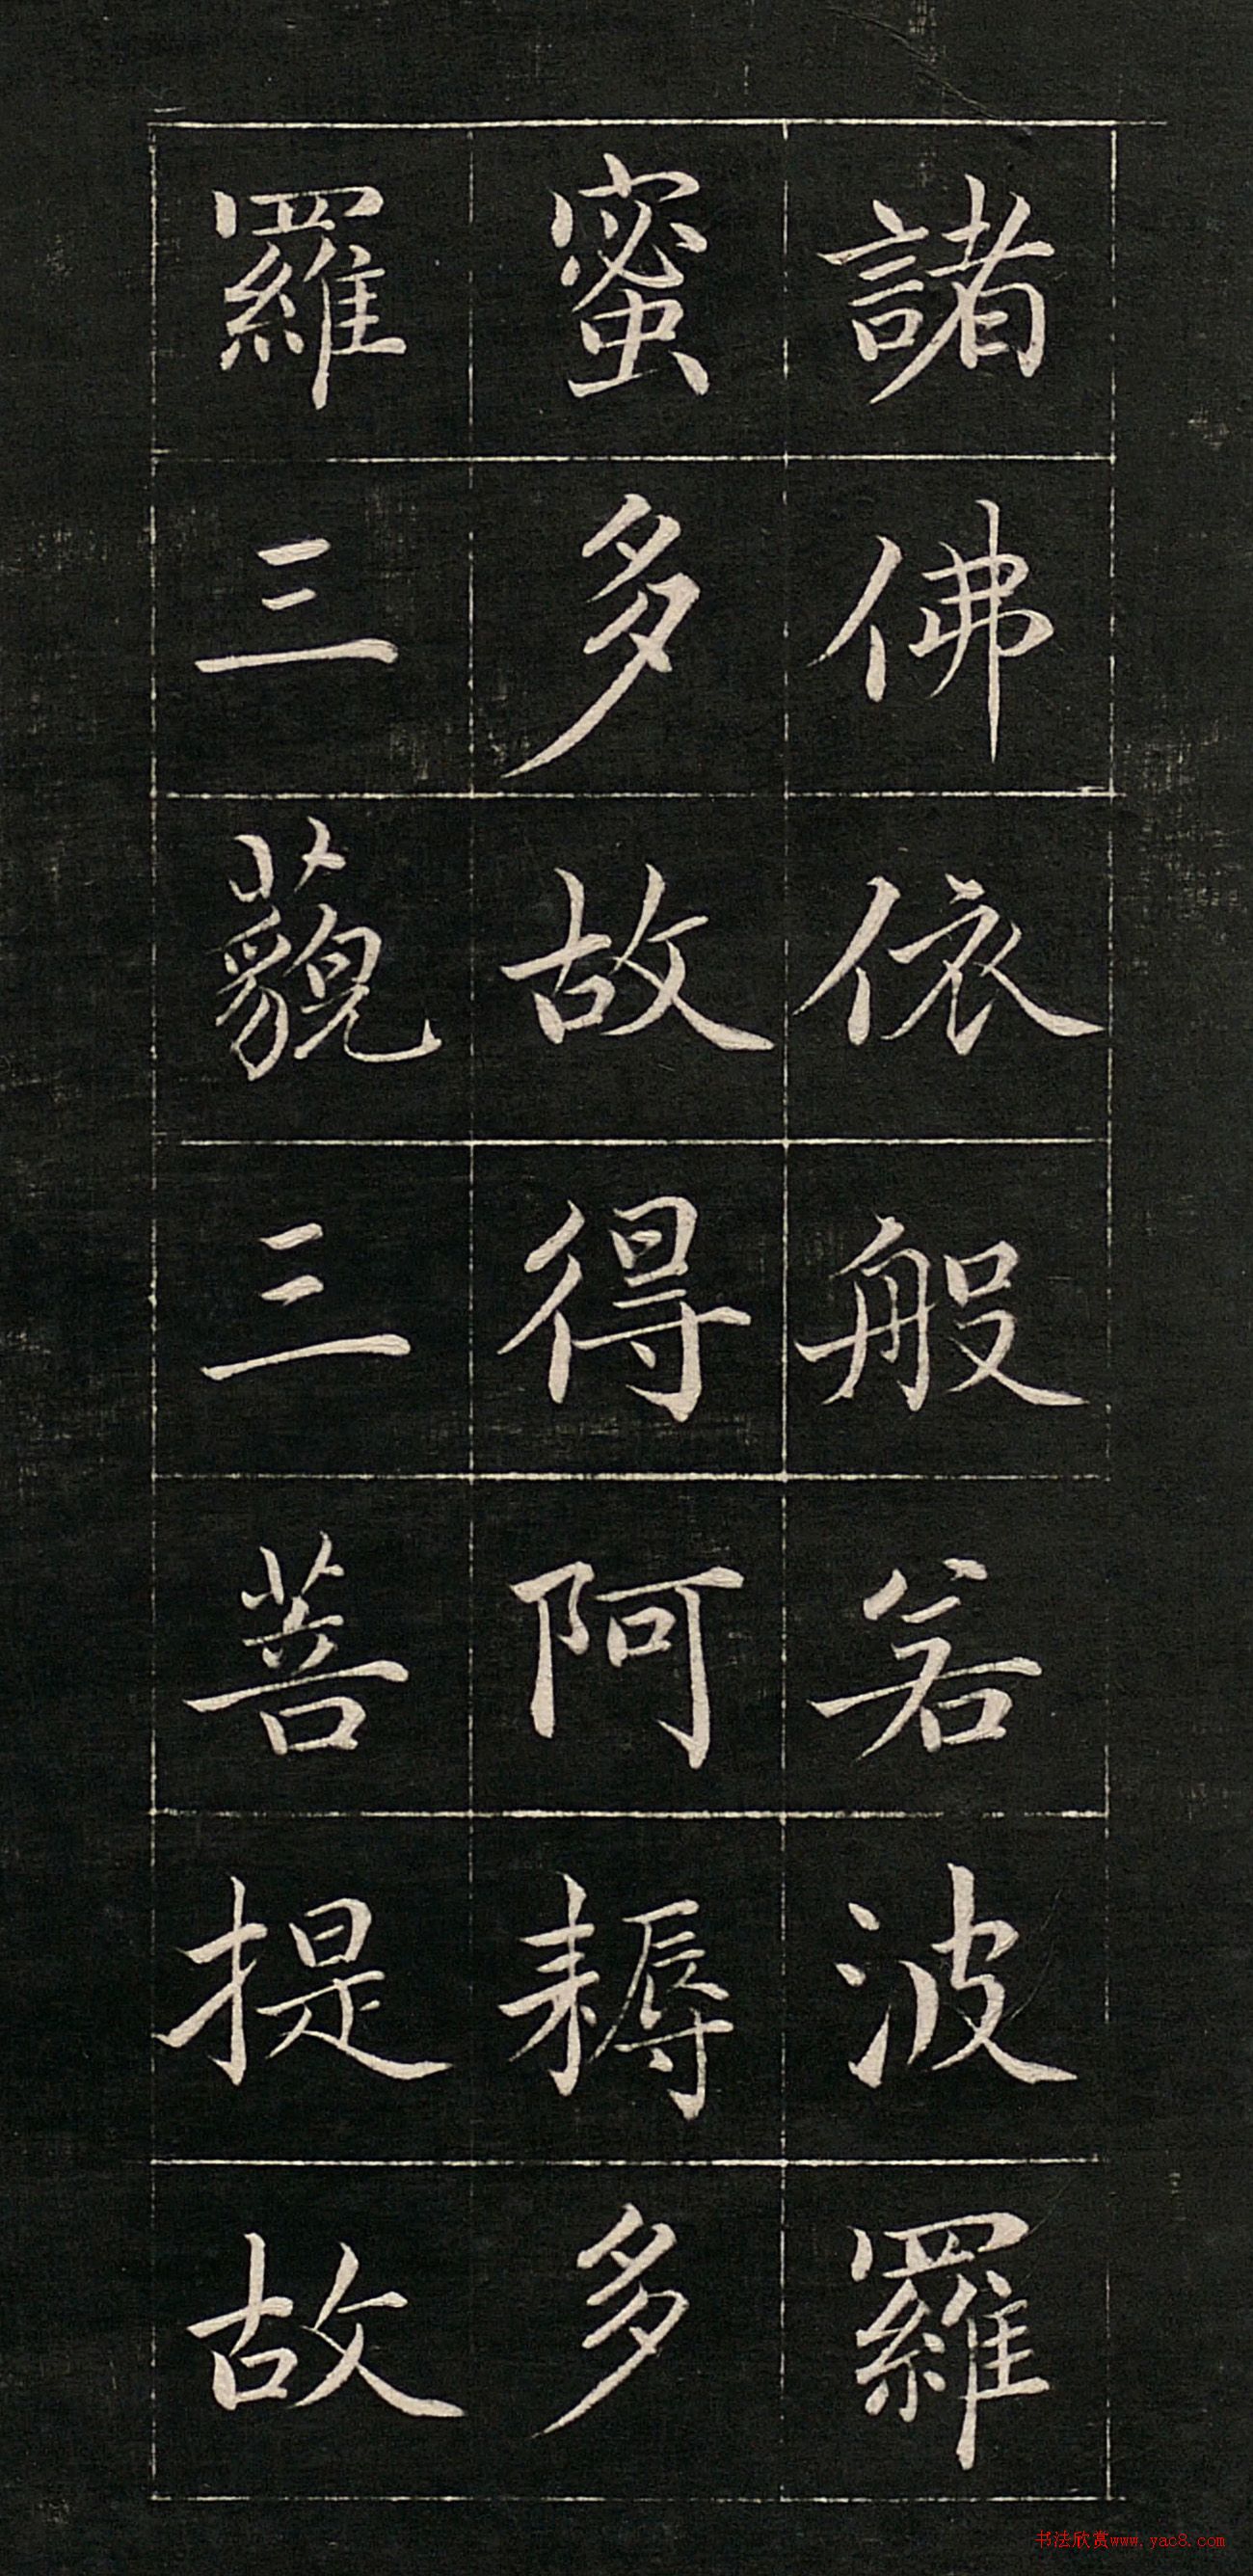 諸佛依般若波羅
蜜多故得阿耨多
羅三藐三菩提故
书法欣赏www.yac8.com